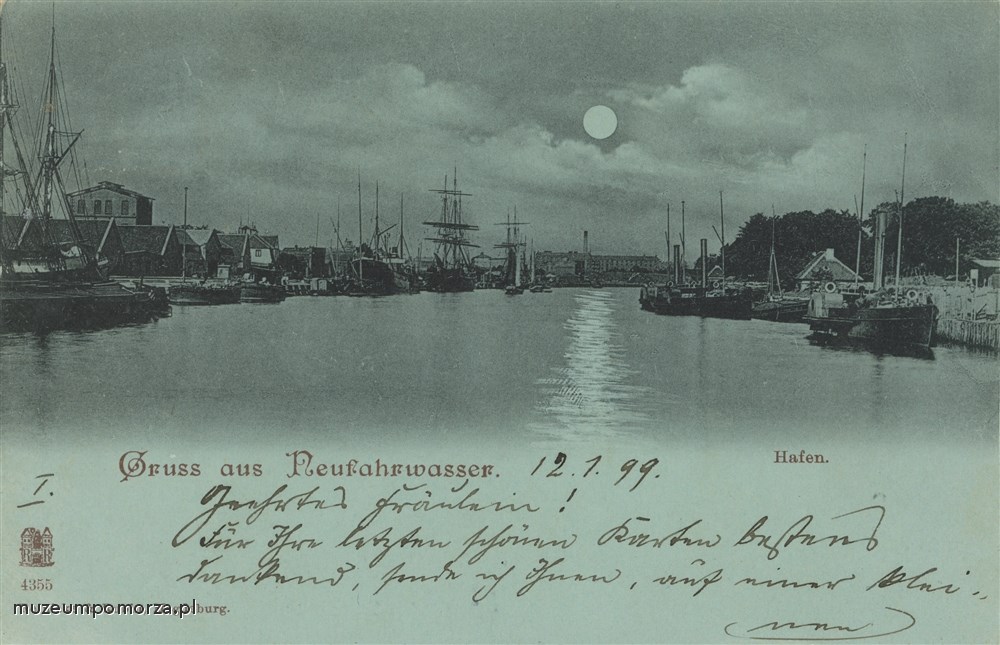 Gruss aus Neufahrwasser. 12.1.99.
Hafen.
I.
Geehrtes Fräulein!
Für Ihre letzten schönen Karten bestens
dankend, sende ich Ihnen, auf einer klei-
nen
R R
4355
muzeumpomorza.pl
burg.